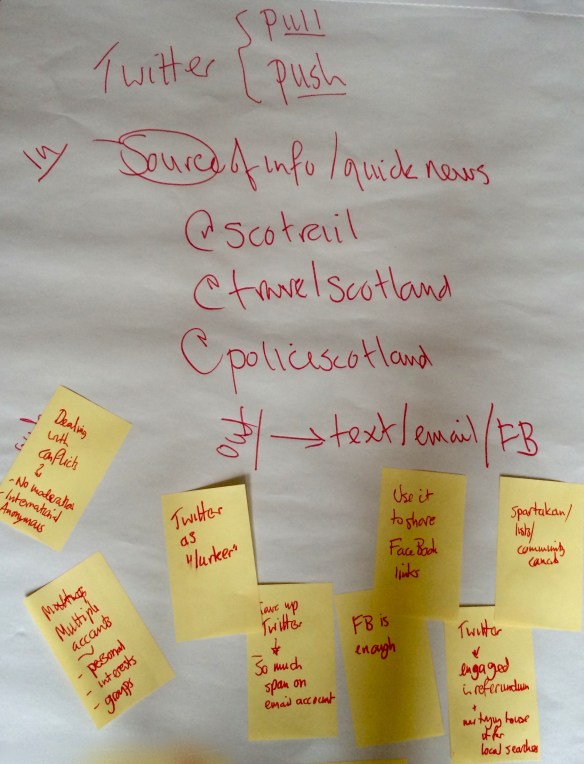 Twitter { pull
push
In/ Source of info / quick news
@scotrail
@travelscotland
@policescotland
out/ → text/email/FB
Dealing
with
conflict
- No moderation
- International
Anonymous
Twitter
as
"lurker"
Use it
to share
FaceBook
links
Spartakan/
lists/
community
council
Multiple
accounts
- personal
- interests
- groups
Gave up
Twitter
↓
So much
spam on
email account
FB is
enough
Twitter
↓
engaged
in referendum
+
now trying to use
it for
local searches